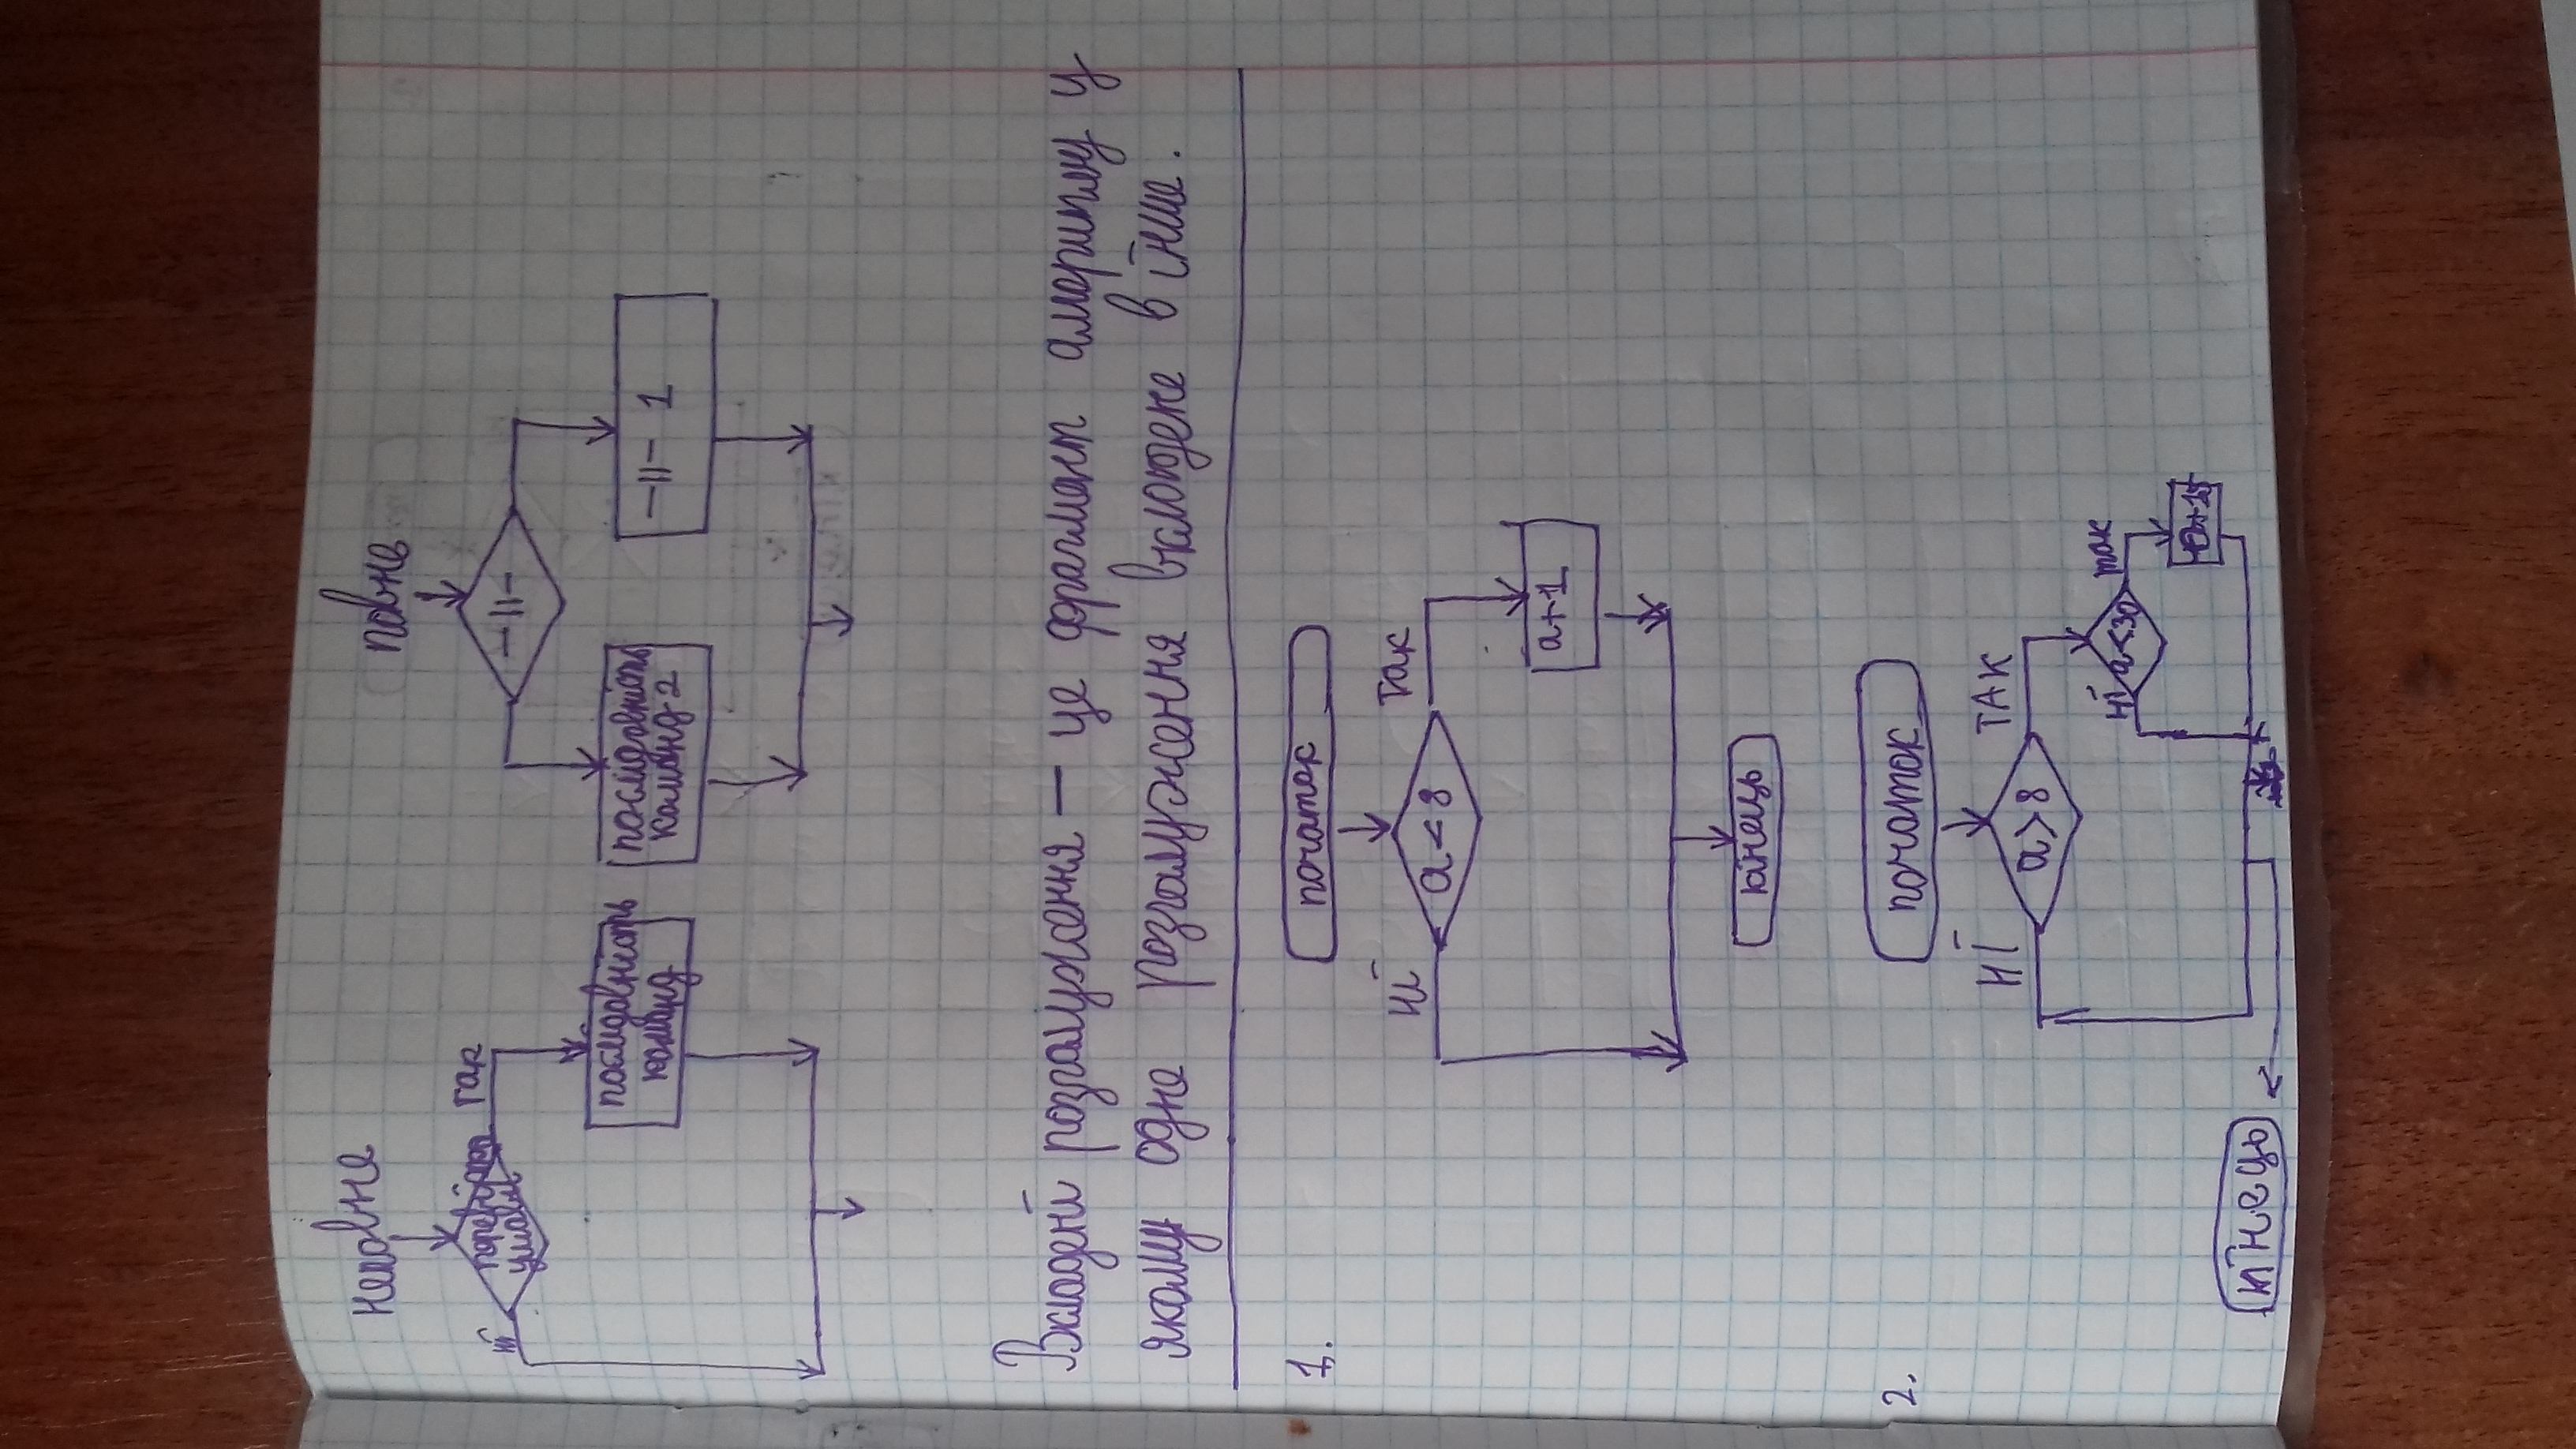 неповне повне
перевірка
умови
ні так
послідовність
команд
-||-
послідовність
команд 2
-||- 1
Вкладені розгалуження — це фрагмент алгоритму у
якому одне розгалуження вкладене в інше.
1.
початок
ні так
a < 8
a+1
кінець
2.
початок
НІ ТАК
a > 8
ні так
a<30
кінець